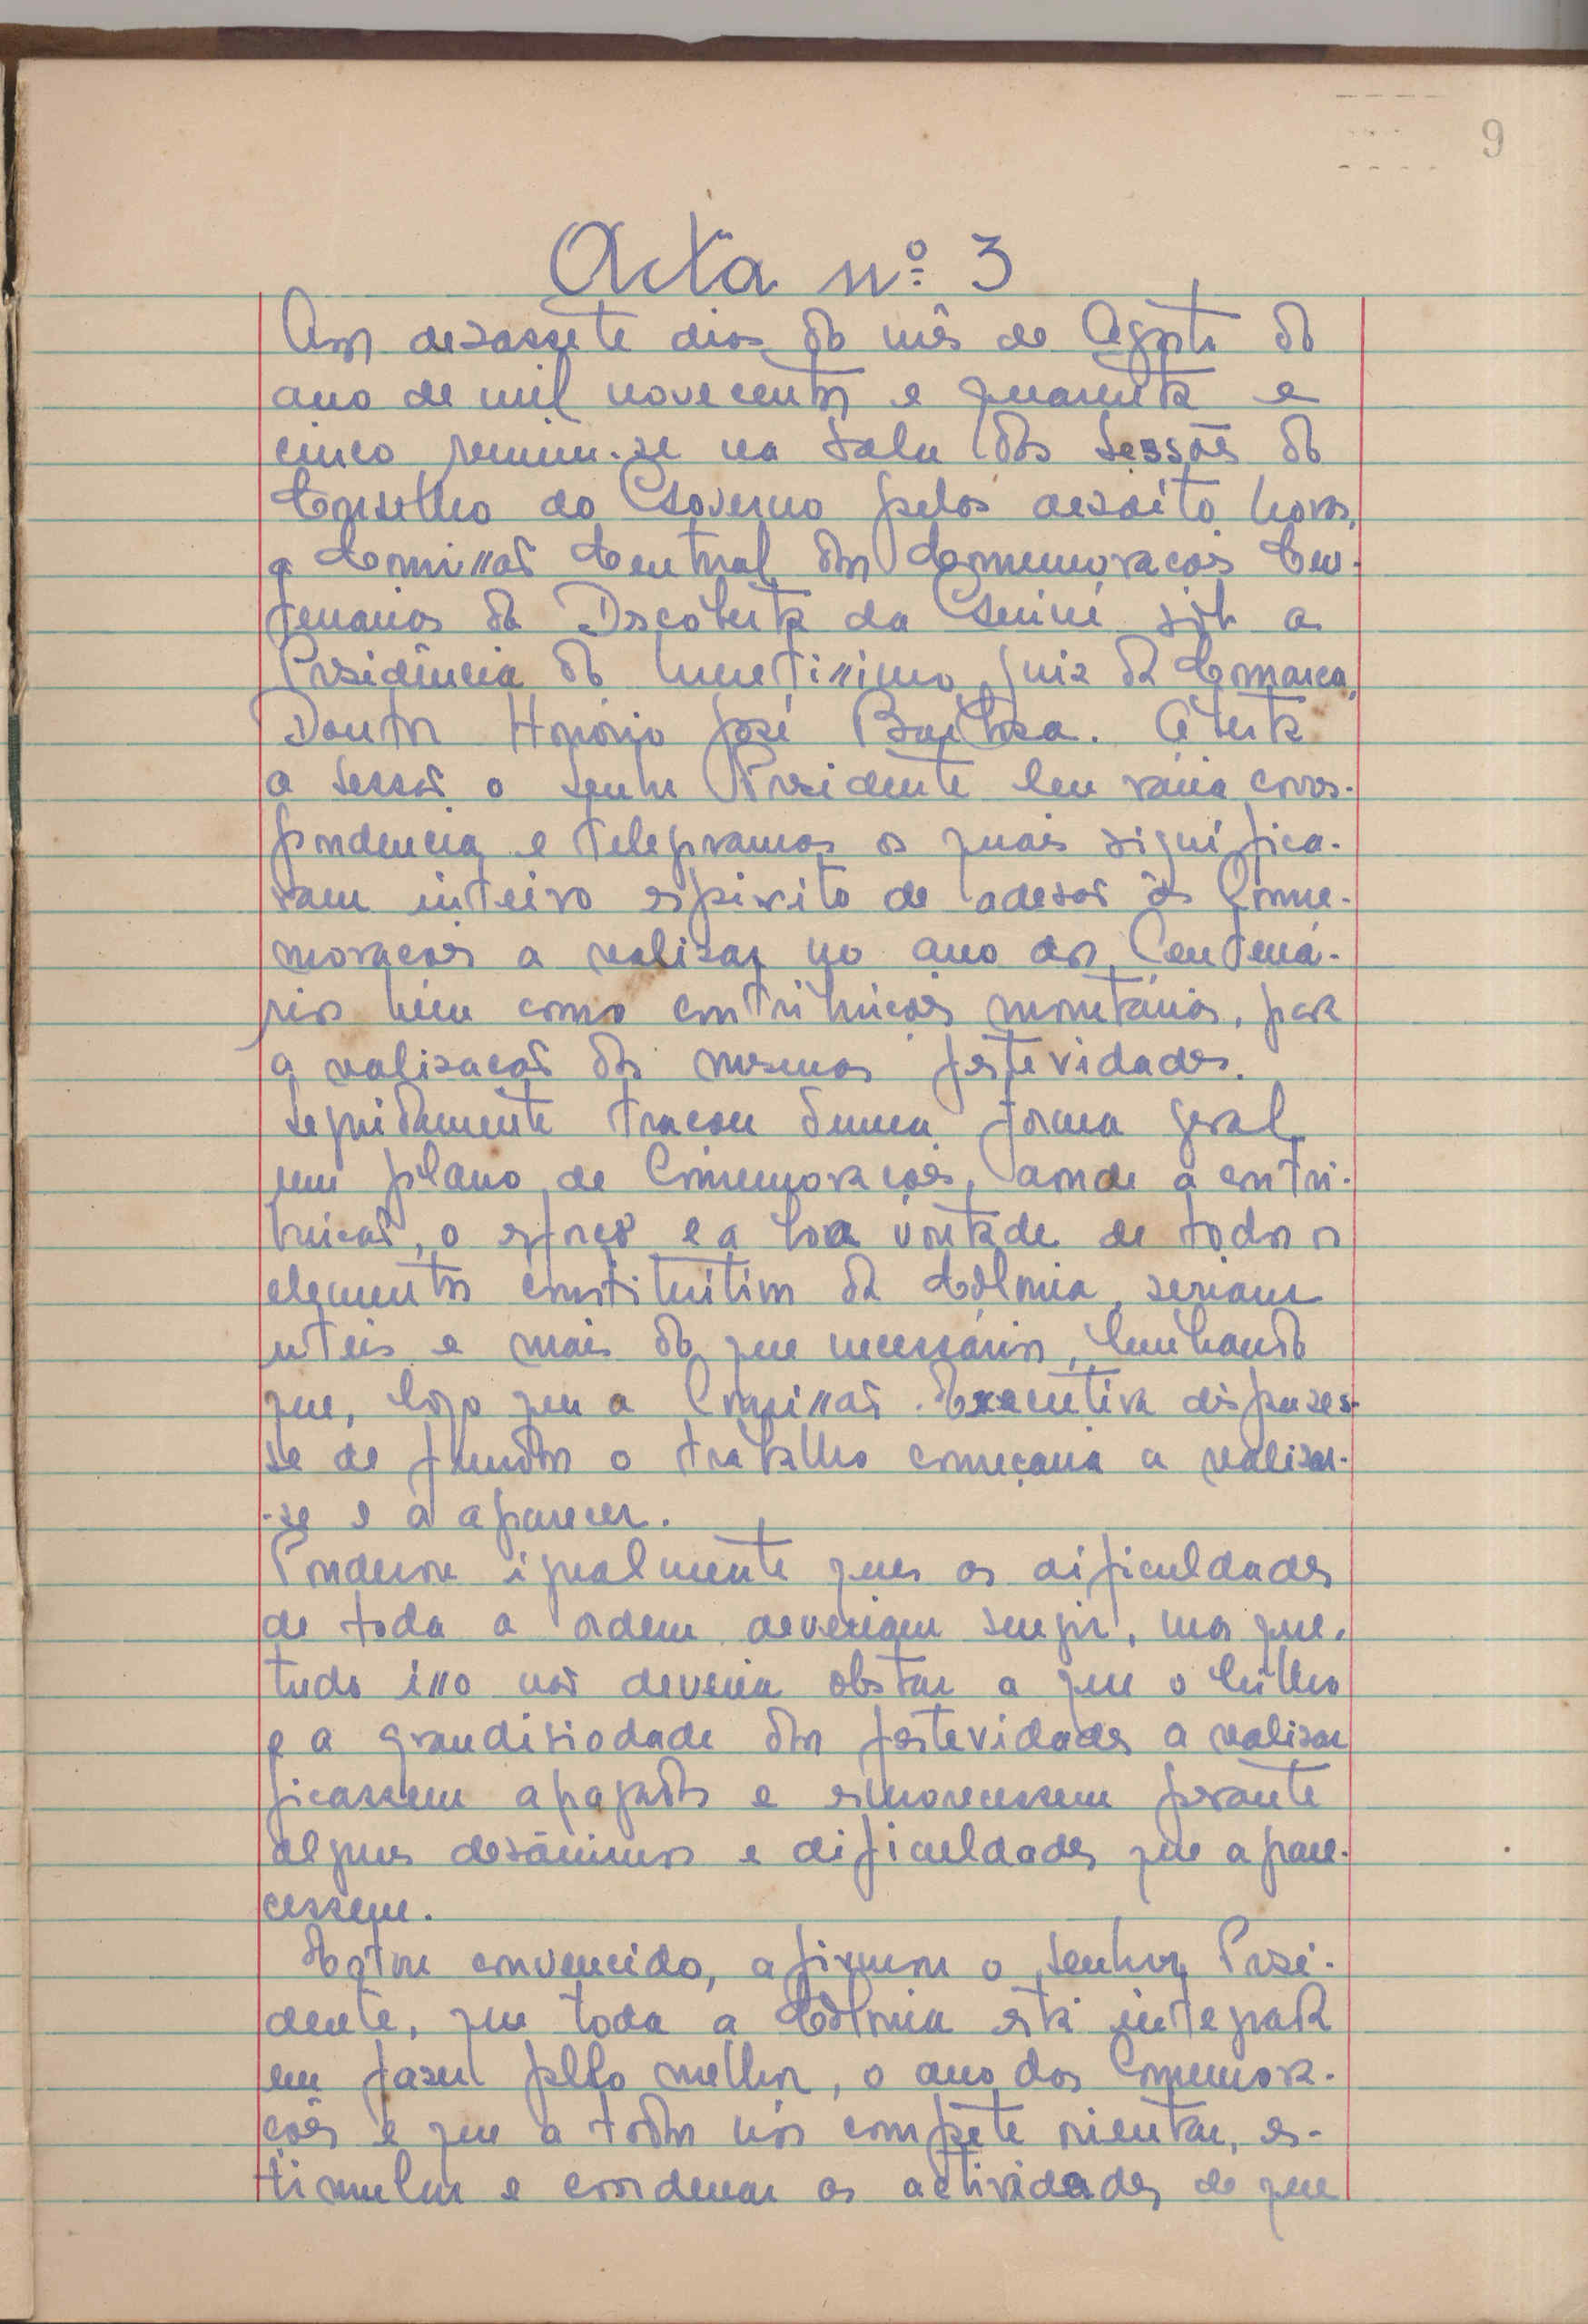 9
Acta nº 3
Aos dezassete dias do mês de Agosto do
ano de mil novecentos e quarenta e
cinco reuniu-se na Sala das Sessões do
Conselho do Governo pelas dezoito horas,
a Comissão Central das Comemorações Cen-
tenárias da Descoberta da Guiné sob a
Presidência do Meretissimo Juiz da Comarca,
Doutor Honório José Barbosa. Aberta
a Sessão o Senhor Presidente leu vária corres-
pondencia e telegramas os quais significa-
vam inteiro espirito de adesão ás Come-
morações a realizar no ano dos Centená-
rios bem como contribuições monetárias, para
a realização das mesmas festevidades.
Seguidamente traçou duma forma geral
um plano de Comemorações, aonde a contri-
buição, o esforço e a boa vontade de todos os
elementos constituitivos da Colónia, seriam
uteis e mais do que necessários, lembrando
que, logo que a Comissão Executiva dispuzes-
se de fundos o trabalho começaria a realizar-
-se e a aparecer.
Ponderou igualmente que as dificuldades
de toda a ordem deveriam surgir, mas que,
tudo isso não deveria obstar a que o brilho
e a grandisiodade das festevidades a realizar
ficassem apagados e esmorecessem perante
alguns desânimos e dificuldades que apare-
cessem.
Estou convencido, afirmou o Senhor Presi-
dente, que toda a Colónia está integrada
em fazer pelo melhor, o ano das Comemora-
ções e que a todos nós compete orientar, es-
timular e coordenar as actividades de que